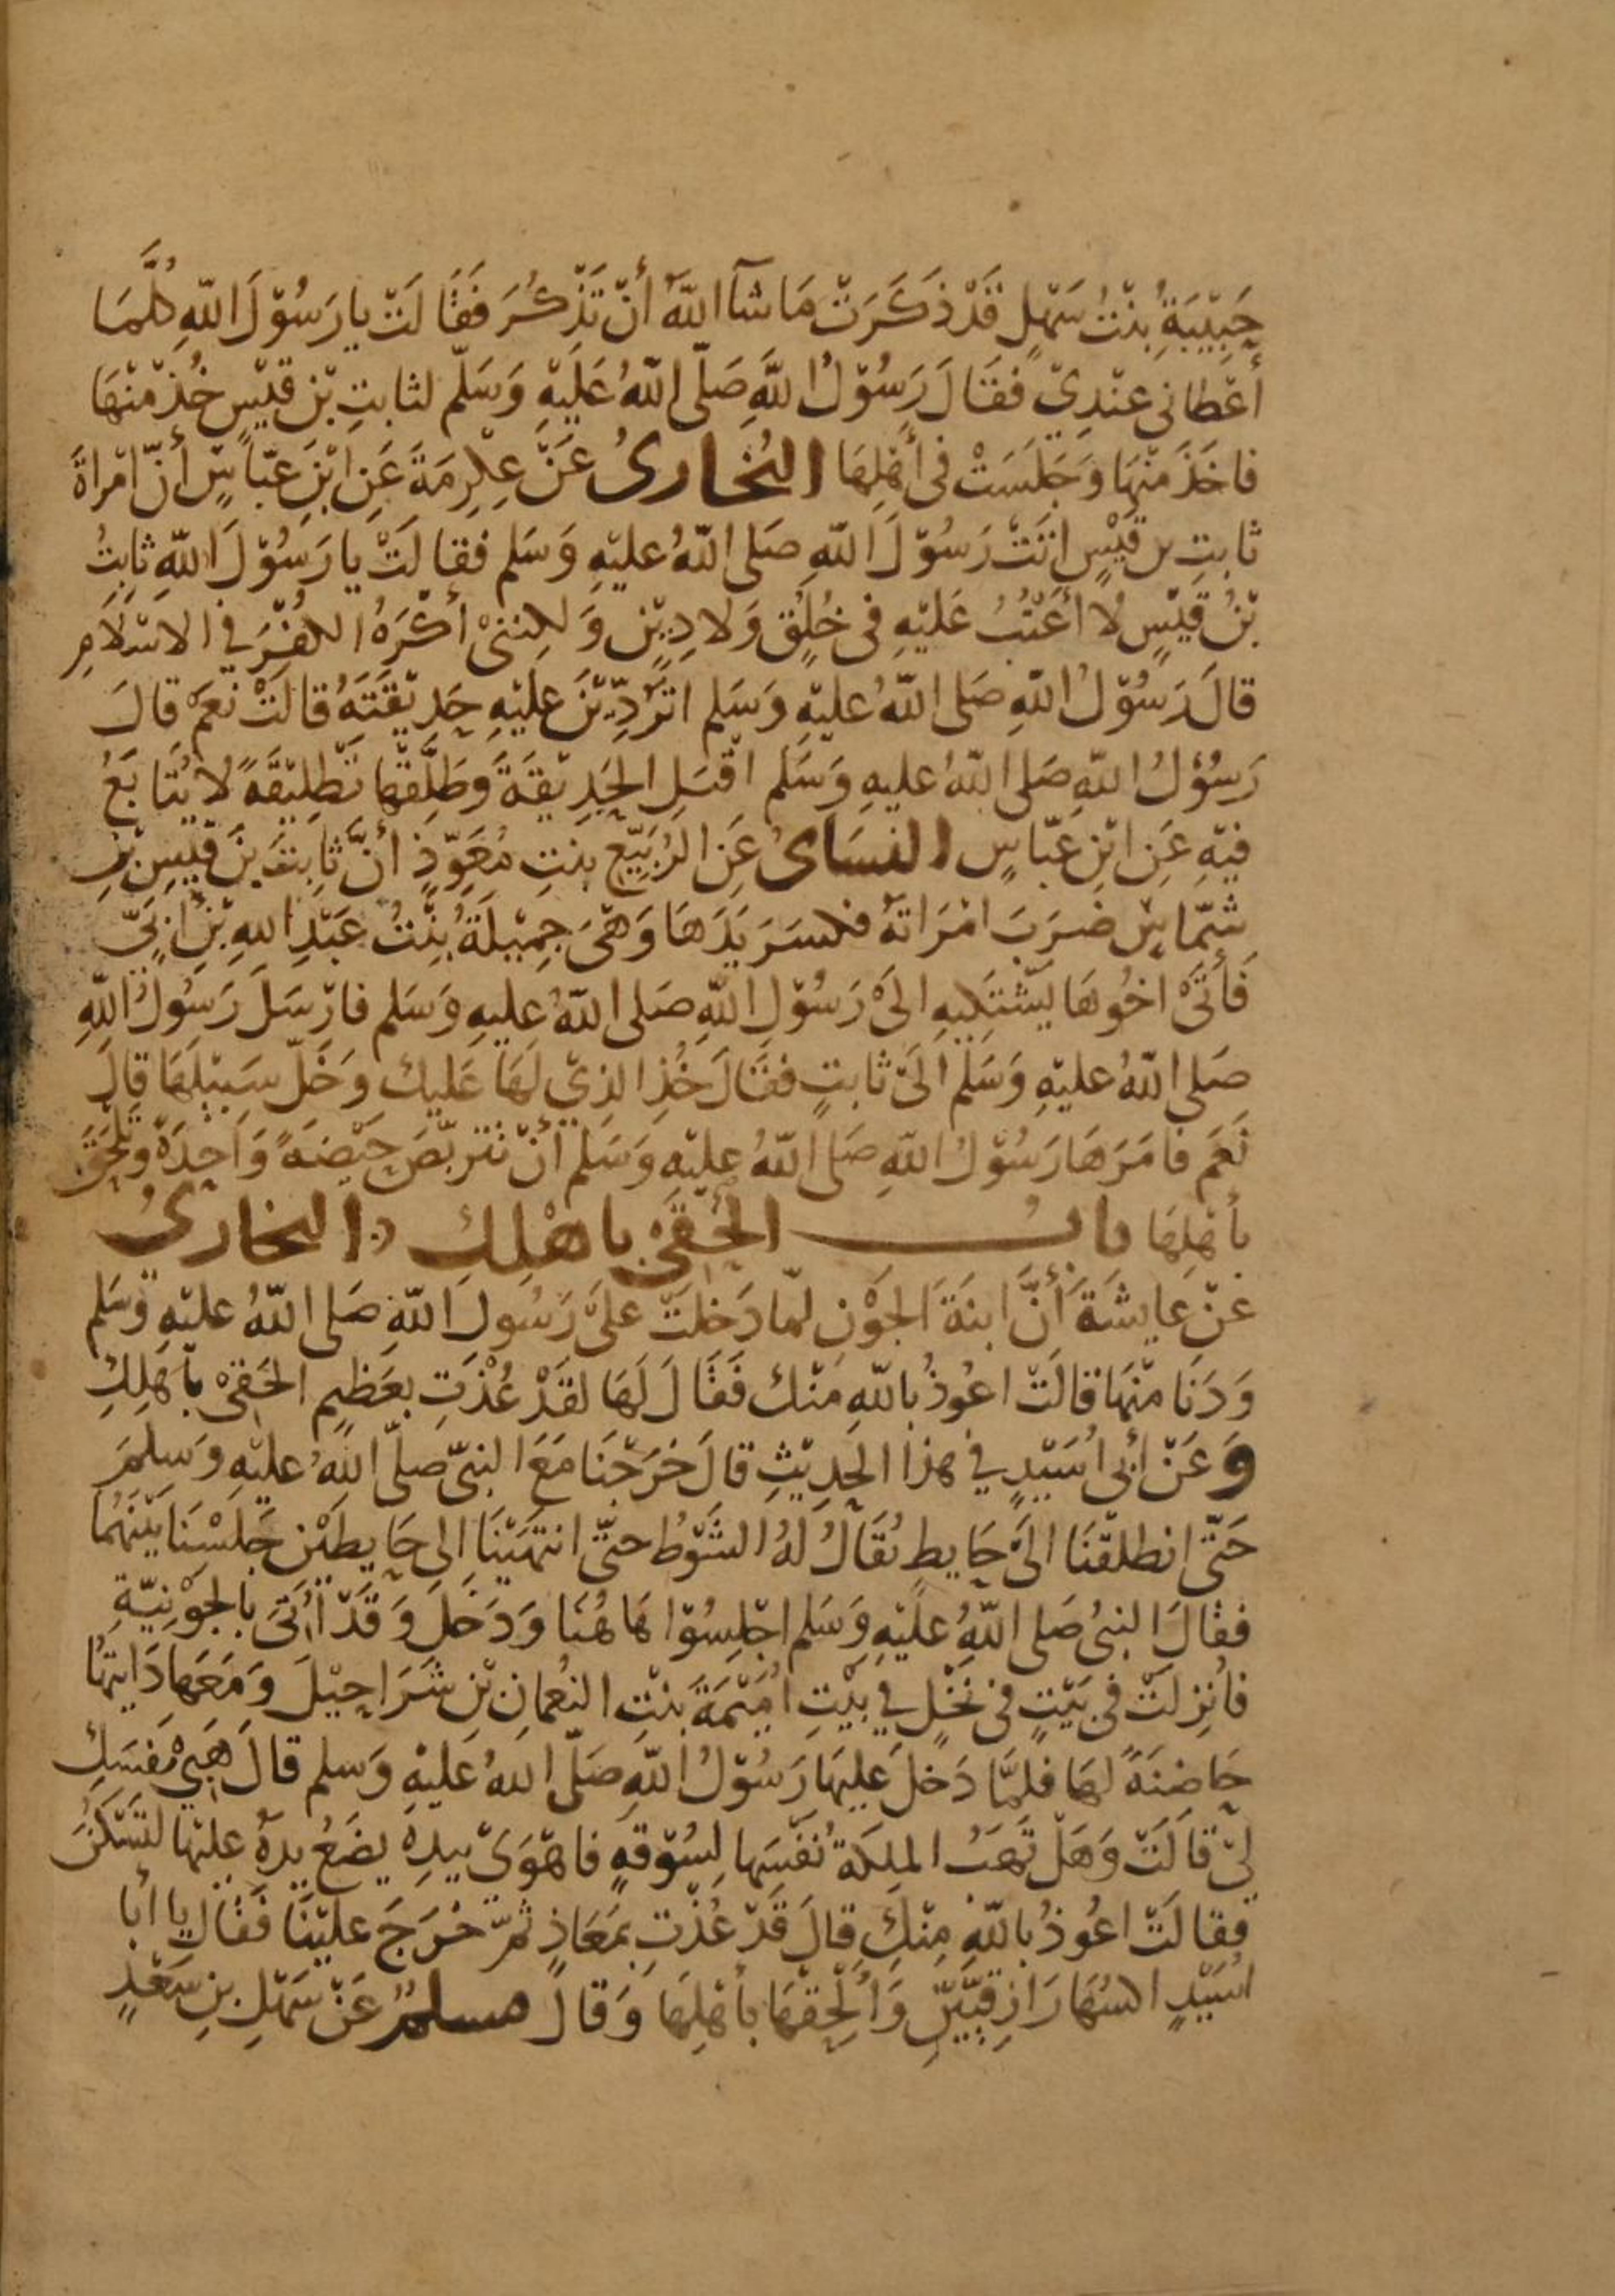 حَبِيْبَةُ بِنْتُ سَهْلٍ قَدْ ذَكَرَتْ مَا شَآ اللّٰهُ أنْ تَذْكُرَ فَقَالَتْ يا رَسُوْلَ اللّٰهِ كُلَّمَا
أعْطانى عنْدِيْ فقَالَ رَسُوْلُ اللّٰهِ صَلّى اللّٰهُ عَلَيْهِ وَسَلّم لثابتِ بْن قيْسٍ خُذْ منْهَا
فاخَذَ منْهَا وَجَلَسَتْ فى أهْلِهَا البُخارىُ عَنْ عِكْرِمَةَ عَنِ ابْنِ عبّاسٍ أنّ امْراةَ
ثابتِ بن قَيْسٍ اتَتْ رَسُوْلَ اللّٰهِ صَلى اللّٰهُ عليْهِ وَسَلم فقالَتْ يا رَسُوْلَ اللّٰهِ ثابتُ
بْنُ قَيْسٍ لا أعْتُبُ عَليْهِ فى خُلُقٍ وَلا دِيْنٍ وَلكِننىْ أكْرَهُ الكُفْرَ في الاسْلامِ
قالَ رَسُوْلُ اللّٰهِ صَلى اللّٰهُ عليْهِ وَسَلم اترُدِّيْنَ عليْهِ حَدِيْقَتَهُ قالَتْ نعَمْ قالَ
رَسُوْلُ اللّٰهِ صَلى اللّٰهُ عليهِ وَسَلم اقْبَلِ الحَدِيْقَةَ وَطَلِّقْها تَطْلِيْقَةً لا يُتابَعُ
فيْهِ عَنِ ابْنِ عَبّاسٍ النسَاىُ عَنِ الرُبَيّعِ بنتِ مُعَوِّذٍ أنَّ ثابتَ بنَ قَيْسِ بْنِ
شمّاسٍ ضَرَبَ امْرَاتَهُ فكسَرَ يَدَهَا وَهْىَ جمِيْلَةُ بنْتُ عَبْدِ اللهِ بْنِ أبَىّ
فَأتَىْ اخُوهَا يَشْتَكِيهِ الىْ رَسُوْلِ اللّٰهِ صَلى اللّٰهُ عليهِ وَسَلم فارْسَلَ رَسُولُ اللّٰهِ
صَلى اللّٰهُ عليْهِ وَسَلم الىْ ثابتٍ فقالَ خُذِ الذِيْ لَهَا عَليك وَخَلّ سَبيْلَهَا قالَ
نَعَم فامَرَهَا رَسُوْلُ اللّٰهِ صَلى اللّٰهُ عليْهِ وَسَلم أنْ تتربّصَ حَيْضَةً وَاحِدَةً وتَلْحَقَ
بأهْلِهَا بابُ الحَقىْ باهْلِكِ البخارىُ
عَنْ عايشَةَ أنّ ابنَةَ الجوْنِ لمّا دَخلَتْ علىْ رَسُولِ اللّٰهِ صَلى اللّٰهُ عليْهِ وَسَلم
وَدَنَا منْهَا قالَتْ اعُوذُ باللّٰهِ منْك فَقَالَ لَهَا لقَدْ عُذْتِ بعَظيمٍ الحَقىْ بأهْلِكِ
وَعَنْ أبى اُسَيْدٍ في هذا الحَدِيْثِ قالَ خَرَجْنَا مَعَ النبىّ صَلّى اللّٰهُ عليْهِ وَسَلم
حَتّى انطلَقْنَا الىْ حَايطٍ يُقَالُ لَهُ الشَّوْطُ حتّى انتهَيْنَا الى حَايطيْن جَلسْنَا بيْنَهُمَا
فقالَ النبىُ صَلى اللّٰهُ عَليْهِ وَسَلم اجْلِسُوْا هَاهُنَا وَدَخَلَ وَقَدْ أُتىَ بالجوْنِيّةِ
فأُنزلَتْ فى بَيْتٍ فى نَخْلٍ فى بيْتِ اُمَيْمَةَ بنْتِ النعْمَانِ بْنِ شَرَاحِيْلَ وَمَعَهَا دَايتهَا
حَاضنَةً لهَا فلمَّا دَخلَ عليهَا رَسُوْلُ اللّٰهِ صَلّى اللّٰهُ عَليْهِ وَسلم قالَ هَبىْ نفسَكِ
لىْ قَالَتْ وَهَلْ تَهَبُ الملِكَةُ نفْسَهَا لِسُوْقهٍ فاهْوَىْ بيدِهِ يضَعُ يدهُ عليْها لتَسْكُنَ
فقالَتْ اعُوذُ باللّٰهِ مِنْكَ قالَ قَدْ عُذْتِ بمَعَاذٍ ثمّ خرَجَ عليْنَا فَقالَ يا أبا
اُسَيْدٍ اكسُهَا رَازقيَّيْنِ وَألْحِقْهَا بأهْلِهَا وَقالَ مسلمٌ عَنْ سَهْلِ بنِ سَعْدٍ